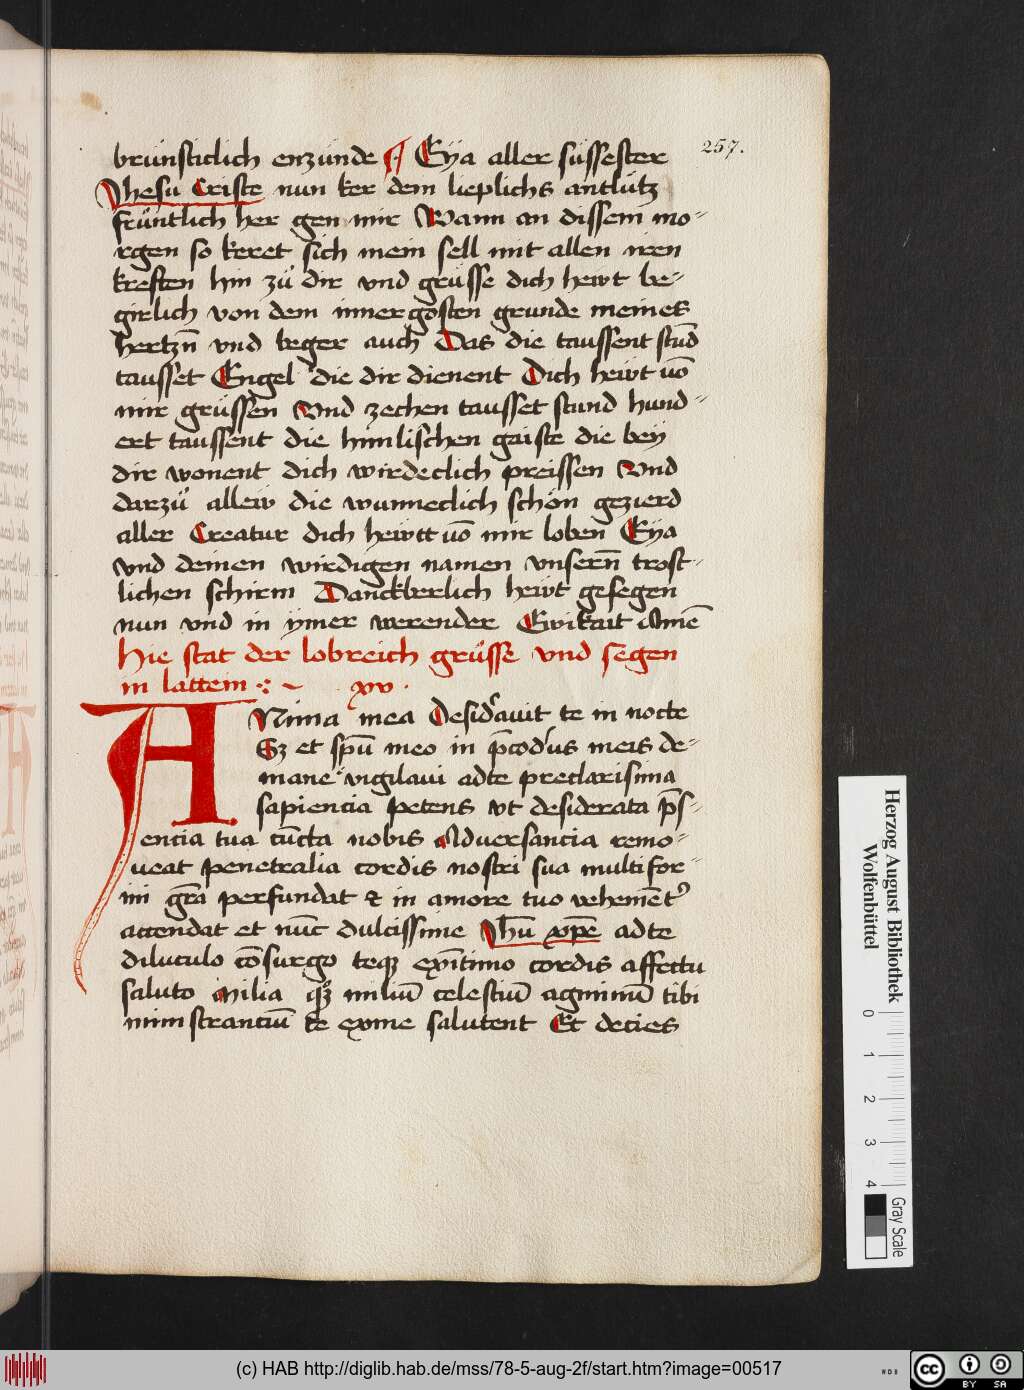 257.
brúnsticlich enzúnde ¶ Eÿa aller sússester
Jhesu Criste nun ker dem lieplichs antlútz
frúntlich her gen mir Wann an dissem mo-
rgen so keret sich mein sell mit allen iren
kreften hin zů dir vnd grüsse dich hewt be-
girlich von dem innergosten grunde meines
hertzn̄ vnd beger auch Das die taussent stūd
tausset Engel die dir dienent Dich hewt vō
mir grüssen Vnd zechen tausset stund hund-
ert taussent die himlischen gaiste die beÿ
dir wonent dich wirdeclich preissen Vnd
darzů allew die wunneclich schön gezierd
aller Creatur dich hewtt vō mir loben Eÿa
vnd deinen wirdigen namen vnsern̄ trost-
lichen schirm Danckberlich hewt gesegen
nun vnd in ÿmer werender Ewikait Amē
Hie stat der lobreich grüsse vnd segen
in lattein xv
ANima mea Desid'auit te in nocte
Sz et spū meo in p̄cod'us meis de-
mane vigilaui adte preclarisima
sapiencia petens vt desiderata p̄s-
encia tua cūcta nobis Aduersancia remo-
ueat penetralia cordis nostri sua multifor-
mi gr̄a perfundat & in amore tuo vehemēt'
accendat et nūc dulcissime Jhū xp̄e adte
diluculo cōsurgo teq; ex ītimo cordis affectu
saluto Milia qz̄ miliū celestiū agminū tibi
ministranciū te ex me salutent Et decies
Herzog August Bibliothek
Wolfenbüttel
0
1
2
3
4
Gray Scale
(c) HAB http://diglib.hab.de/mss/78-5-aug-2f/start.htm?image=00517
cc BY SA